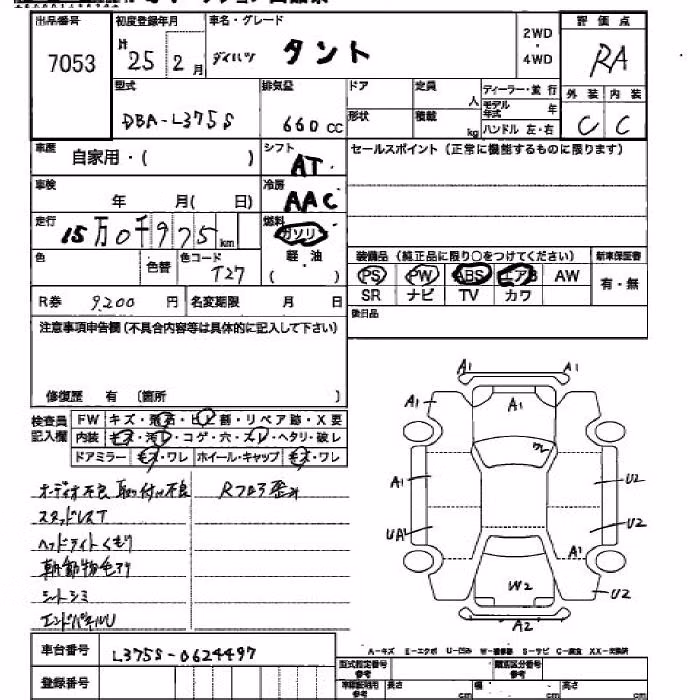 出品番号 初度登録年月 車名・グレード 2WD・4WD 評価点
7053 25年2月 ダイハツ タント RA
型式 排気量 ドア 定員 人 ディーラー・並行 外装 内装
DBA-L375S 660cc 形状 積載 kg モデル年式 年 ハンドル 左・右 C C
車歴 自家用・( ) シフト AT セールスポイント(正常に機能するものに限ります)
車検 年 月( 日) 冷房 AAC
走行 15万0千975km 燃料 ガソリン
色 色替 色コード T27 軽・油 ( )
装備品(純正品に限り○をつけてください) 新車保証書
PS PW ABS エアB AW 有・無
SR ナビ TV カワ
R券 9,200円 名変期限 月 日 後日品
注意事項申告欄(不具合内容等は具体的に記入して下さい)
修復歴 有 (箇所 )
検査員記入欄 FW キズ・飛石・ヒビ割・リペア跡・X要
内装 キズ・汚レ・コゲ・穴・スレ・ヘタリ・破レ
ドアミラー キズ・ワレ ホイール・キャップ キズ・ワレ
オーディオ不良 取り付け不良
スタッドレスT
ヘッドライトくもり
シートシミ
エンドパネルU
A1 A1
A1 A1
A1 U2
UA1 U2
A1
W2 U2
A2
A-キズ E-エクボ U-凹み W-補修跡 S-サビ C-腐食 XX-交換済
車台番号 L375S-0624497
登録番号
型式指定番号 参考 類別区分番号 参考
車検証明用 参考 長さ cm 幅 cm 高さ cm